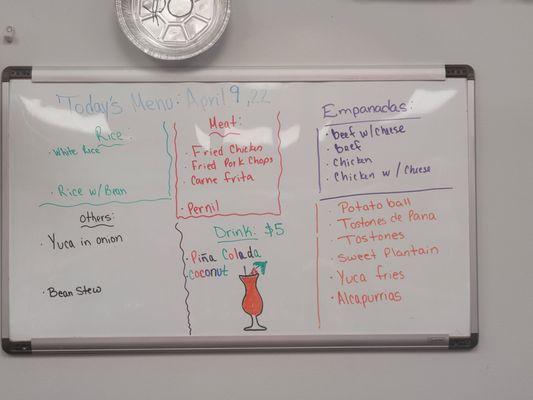 Today's Menu: April 9, 22
Rice:
· White Rice
· Rice w/Bean
others:
· Yuca in onion
· Bean Stew
Meat:
· Fried Chicken
· Fried Pork Chops
· Carne frita
· Pernil
Drink: $5
· Piña Colada
coconut
Empanadas:
· Beef w/cheese
· Beef
· Chicken
· Chicken w/Cheese
· Potato ball
· Tostones de Pana
· Tostones
· Sweet Plantain
· Yuca fries
· Alcapurrias